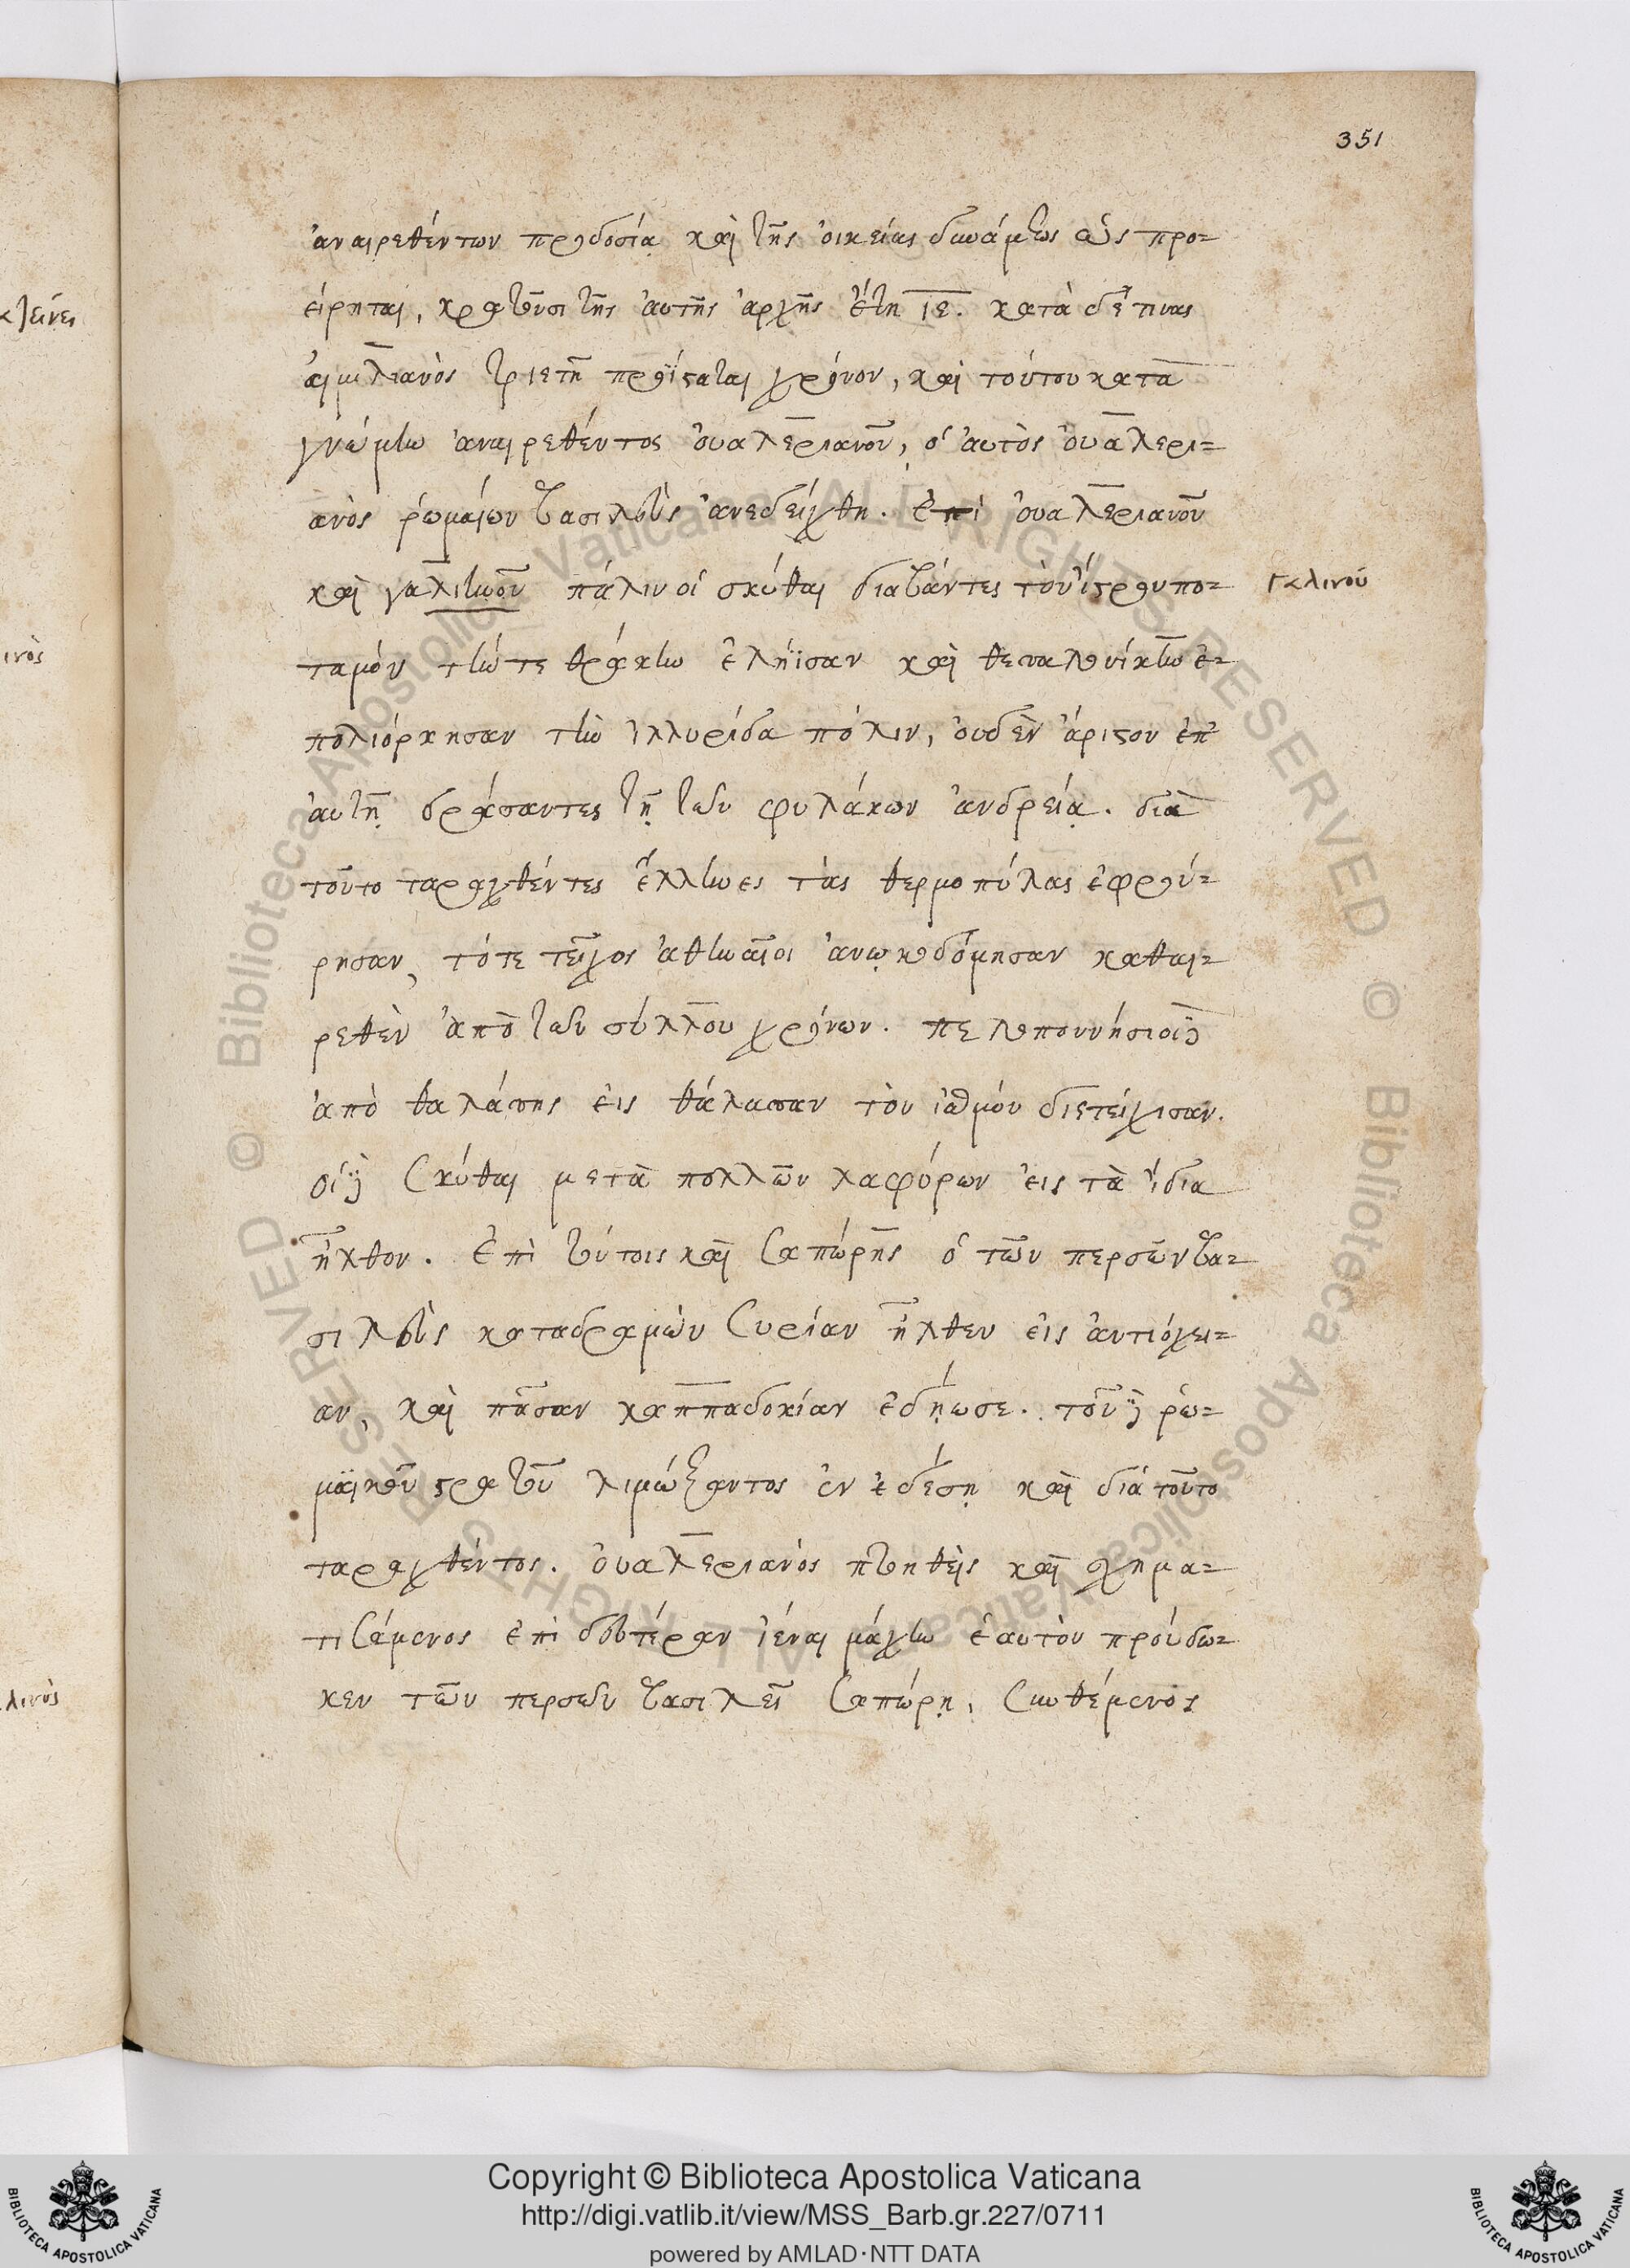 351
ἀναιρεθέντων προδοσίᾳ καὶ τῆς οἰκείας δυνάμεως ὡς προ=
είρηται, κρατοῦσι τῆς αυτῆς ἀρχῆς ἔτη ιε. κατὰ δέ τινας
αἰμιλιανὸς τριετῆ προΐσταται χρόνον, καὶ τούτου κατὰ
γνώμην ἀναιρεθέντος ὀυαλεριανοῦ, ὁ ἀυτὸς ὀυαλερι=
ανὸς ῥωμαίων βασιλεὺς ἀνεδείχθη. ἐπὶ ὀυαλεριανοῦ
καὶ γαλιηνοῦ πάλιν οἱ σκύθαι διαβάντες τὸν ἴστρον πο=
Γαλινού
ταμόν τήν τε θράκην ἐλήϊσαν καὶ θεσσαλονίκην ἐ=
πολιόρκησαν τὴν ἰλλυρίδα πόλιν, ουδὲν ἄριστον ἐπ'
ἀυτῇ δράσαντες τῇ τῶν φυλάκων ἀνδρείᾳ. διὰ
τοῦτο ταραχθέντες ἕλληνες τὰς θερμοπύλας ἐφρού=
ρησαν, τότε τεῖχος ἀθηναῖοι ἀνῳκοδόμησαν καθαι=
ρεθὲν ἀπὸ τῶν σύλλου χρόνων. πελοποννήσιοι δὲ
ἀπὸ θαλάσσης εἰς θάλασσαν τὸν ἰσθμόν διετείχισαν.
οἱ δὲ Σκύθαι μετὰ πολλῶν λαφύρων εἰς τὰ ἴδια
ἦλθον. Ἐπὶ τούτοις καὶ Σαπώρης ὁ τῶν περσῶν βα=
σιλεὺς καταδραμὼν Συρίαν ἦλθεν εἰς ἀντιόχει=
αν, καὶ πᾶσαν καππαδοκίαν ἐδῄωσε. τοῦ δὲ ῥω=
μαϊκοῦ στρατοῦ λιμώξαντος ἐν ἐδέσῃ καὶ διά τοῦτο
ταραχθέντος. ὀυαλεριανὸς πτοηθεὶς καὶ σχημα=
τισάμενος ἐπὶ δευτέραν ἰέναι μάχην ἑαυτὸν προύδω=
κεν τῶν περσῶν βασιλεῖ Σαπώρῃ, Συνθέμενος
Copyright © Biblioteca Apostolica Vaticana
http://digi.vatlib.it/view/MSS_Barb.gr.227/0711
powered by AMLAD·NTT DATA